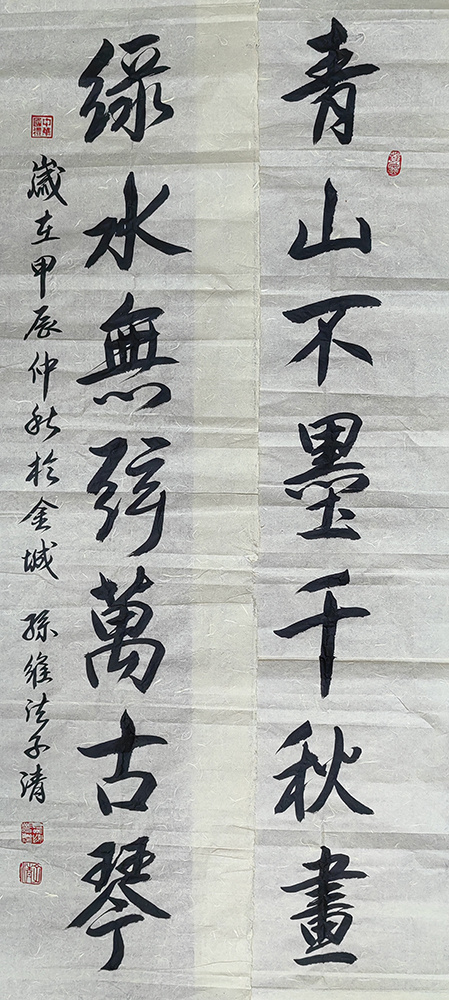 青山不墨千秋畫
綠水無弦萬古琴
歲在甲辰仲秋於金城 孫維法子清